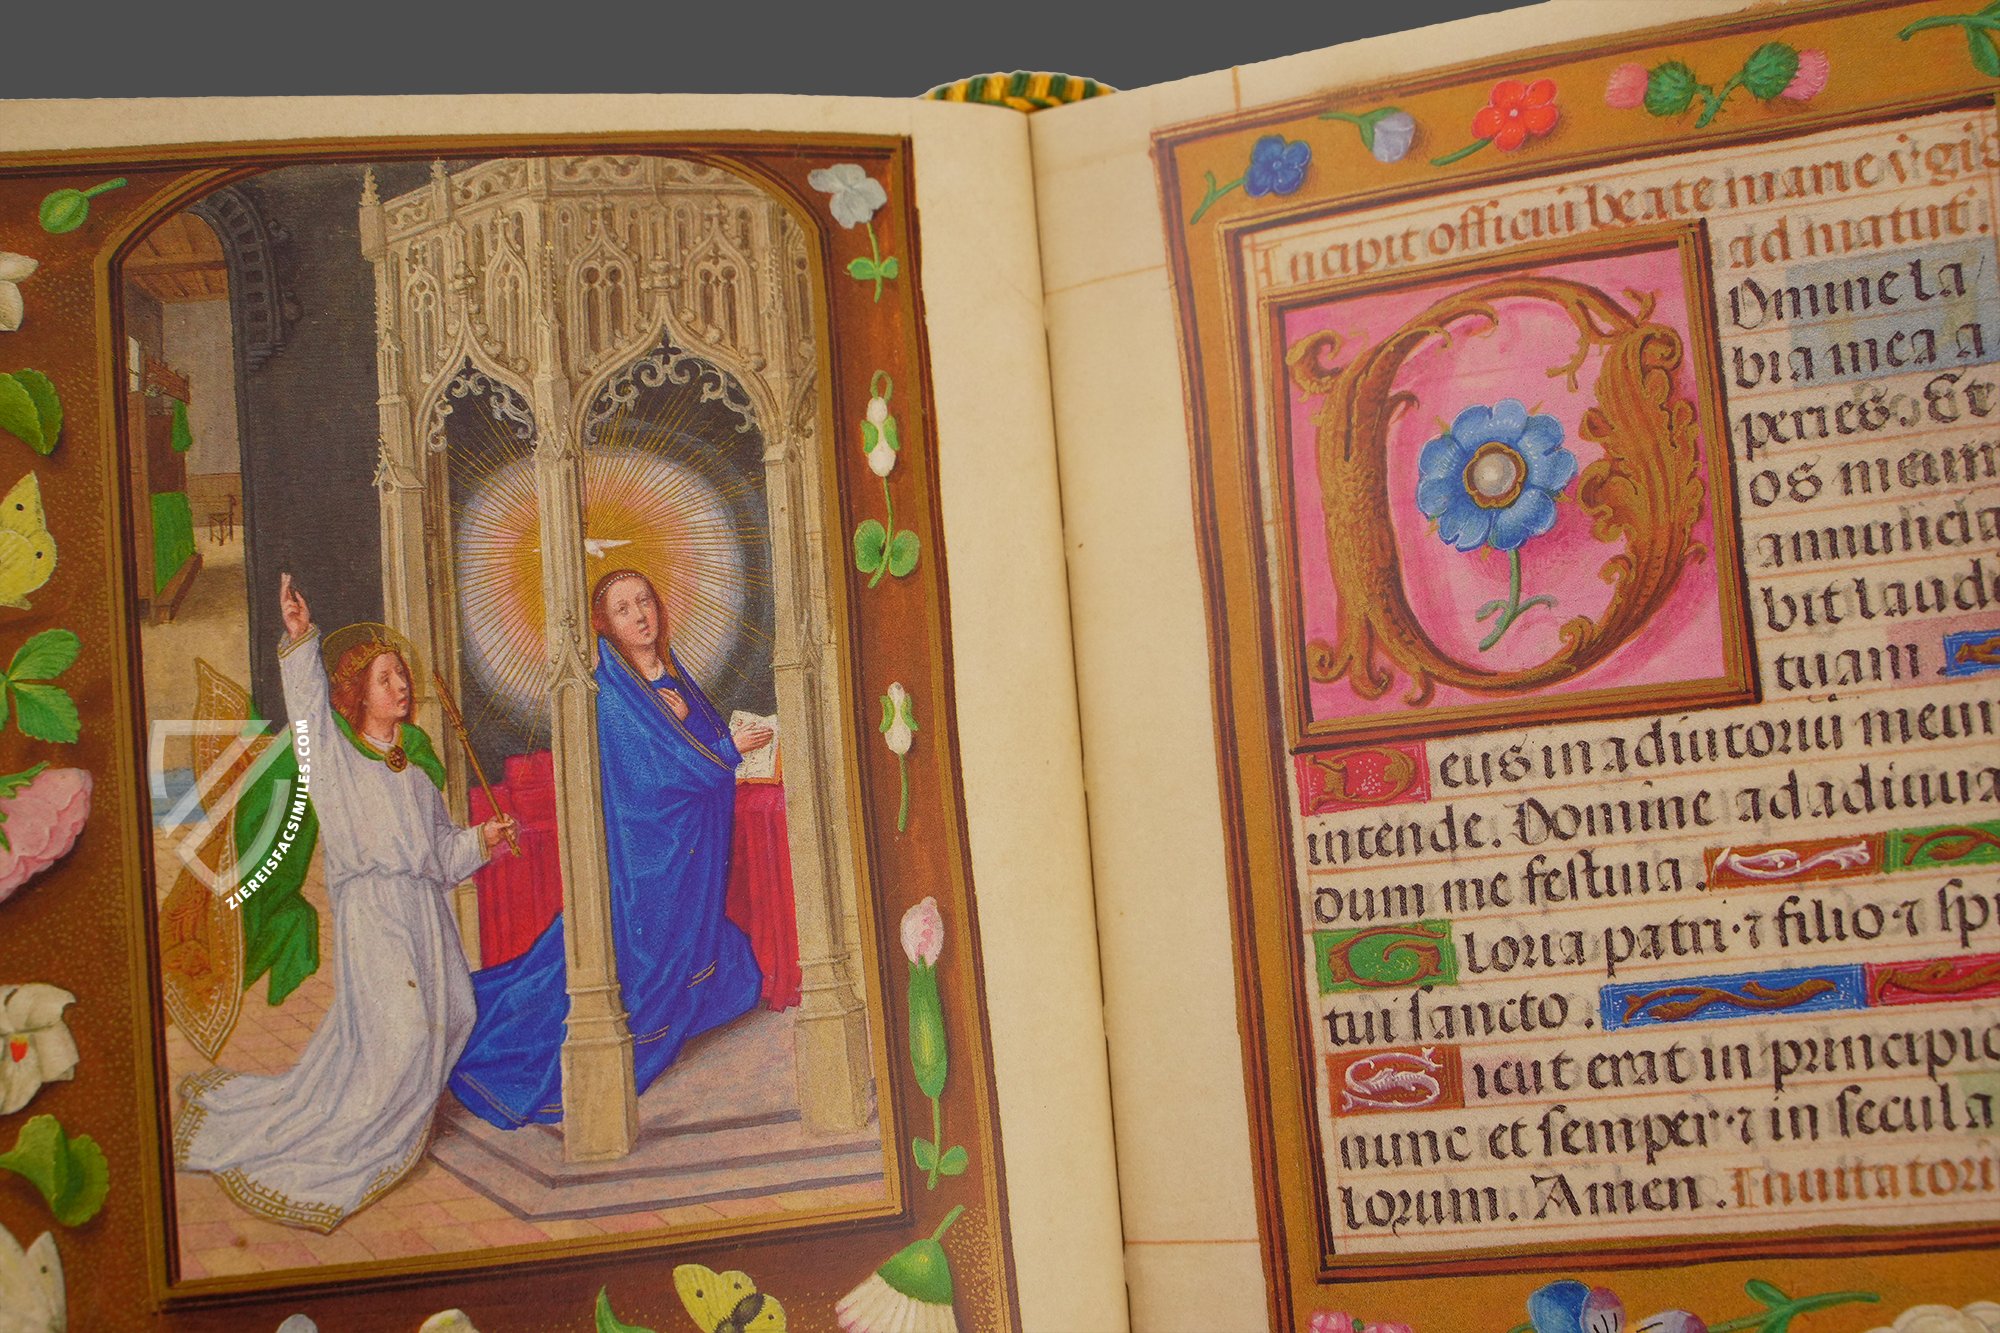 ZIEREISFACSIMILES.COM
Incipit officiũ beate marie v̄gis
ad matut̄.
Domine la
bia mea a
peries. Et
os meum
annuncia
bit laudē
tuam
Deus in adiutoriũ meum
intende. Domine ad adiuua
dum me festina.
Gloria patri ⁊ filio ⁊ sp̄i
tui sancto.
Sicut erat in principio
nunc et semper ⁊ in secula
lorum. Amen. Inuitatori